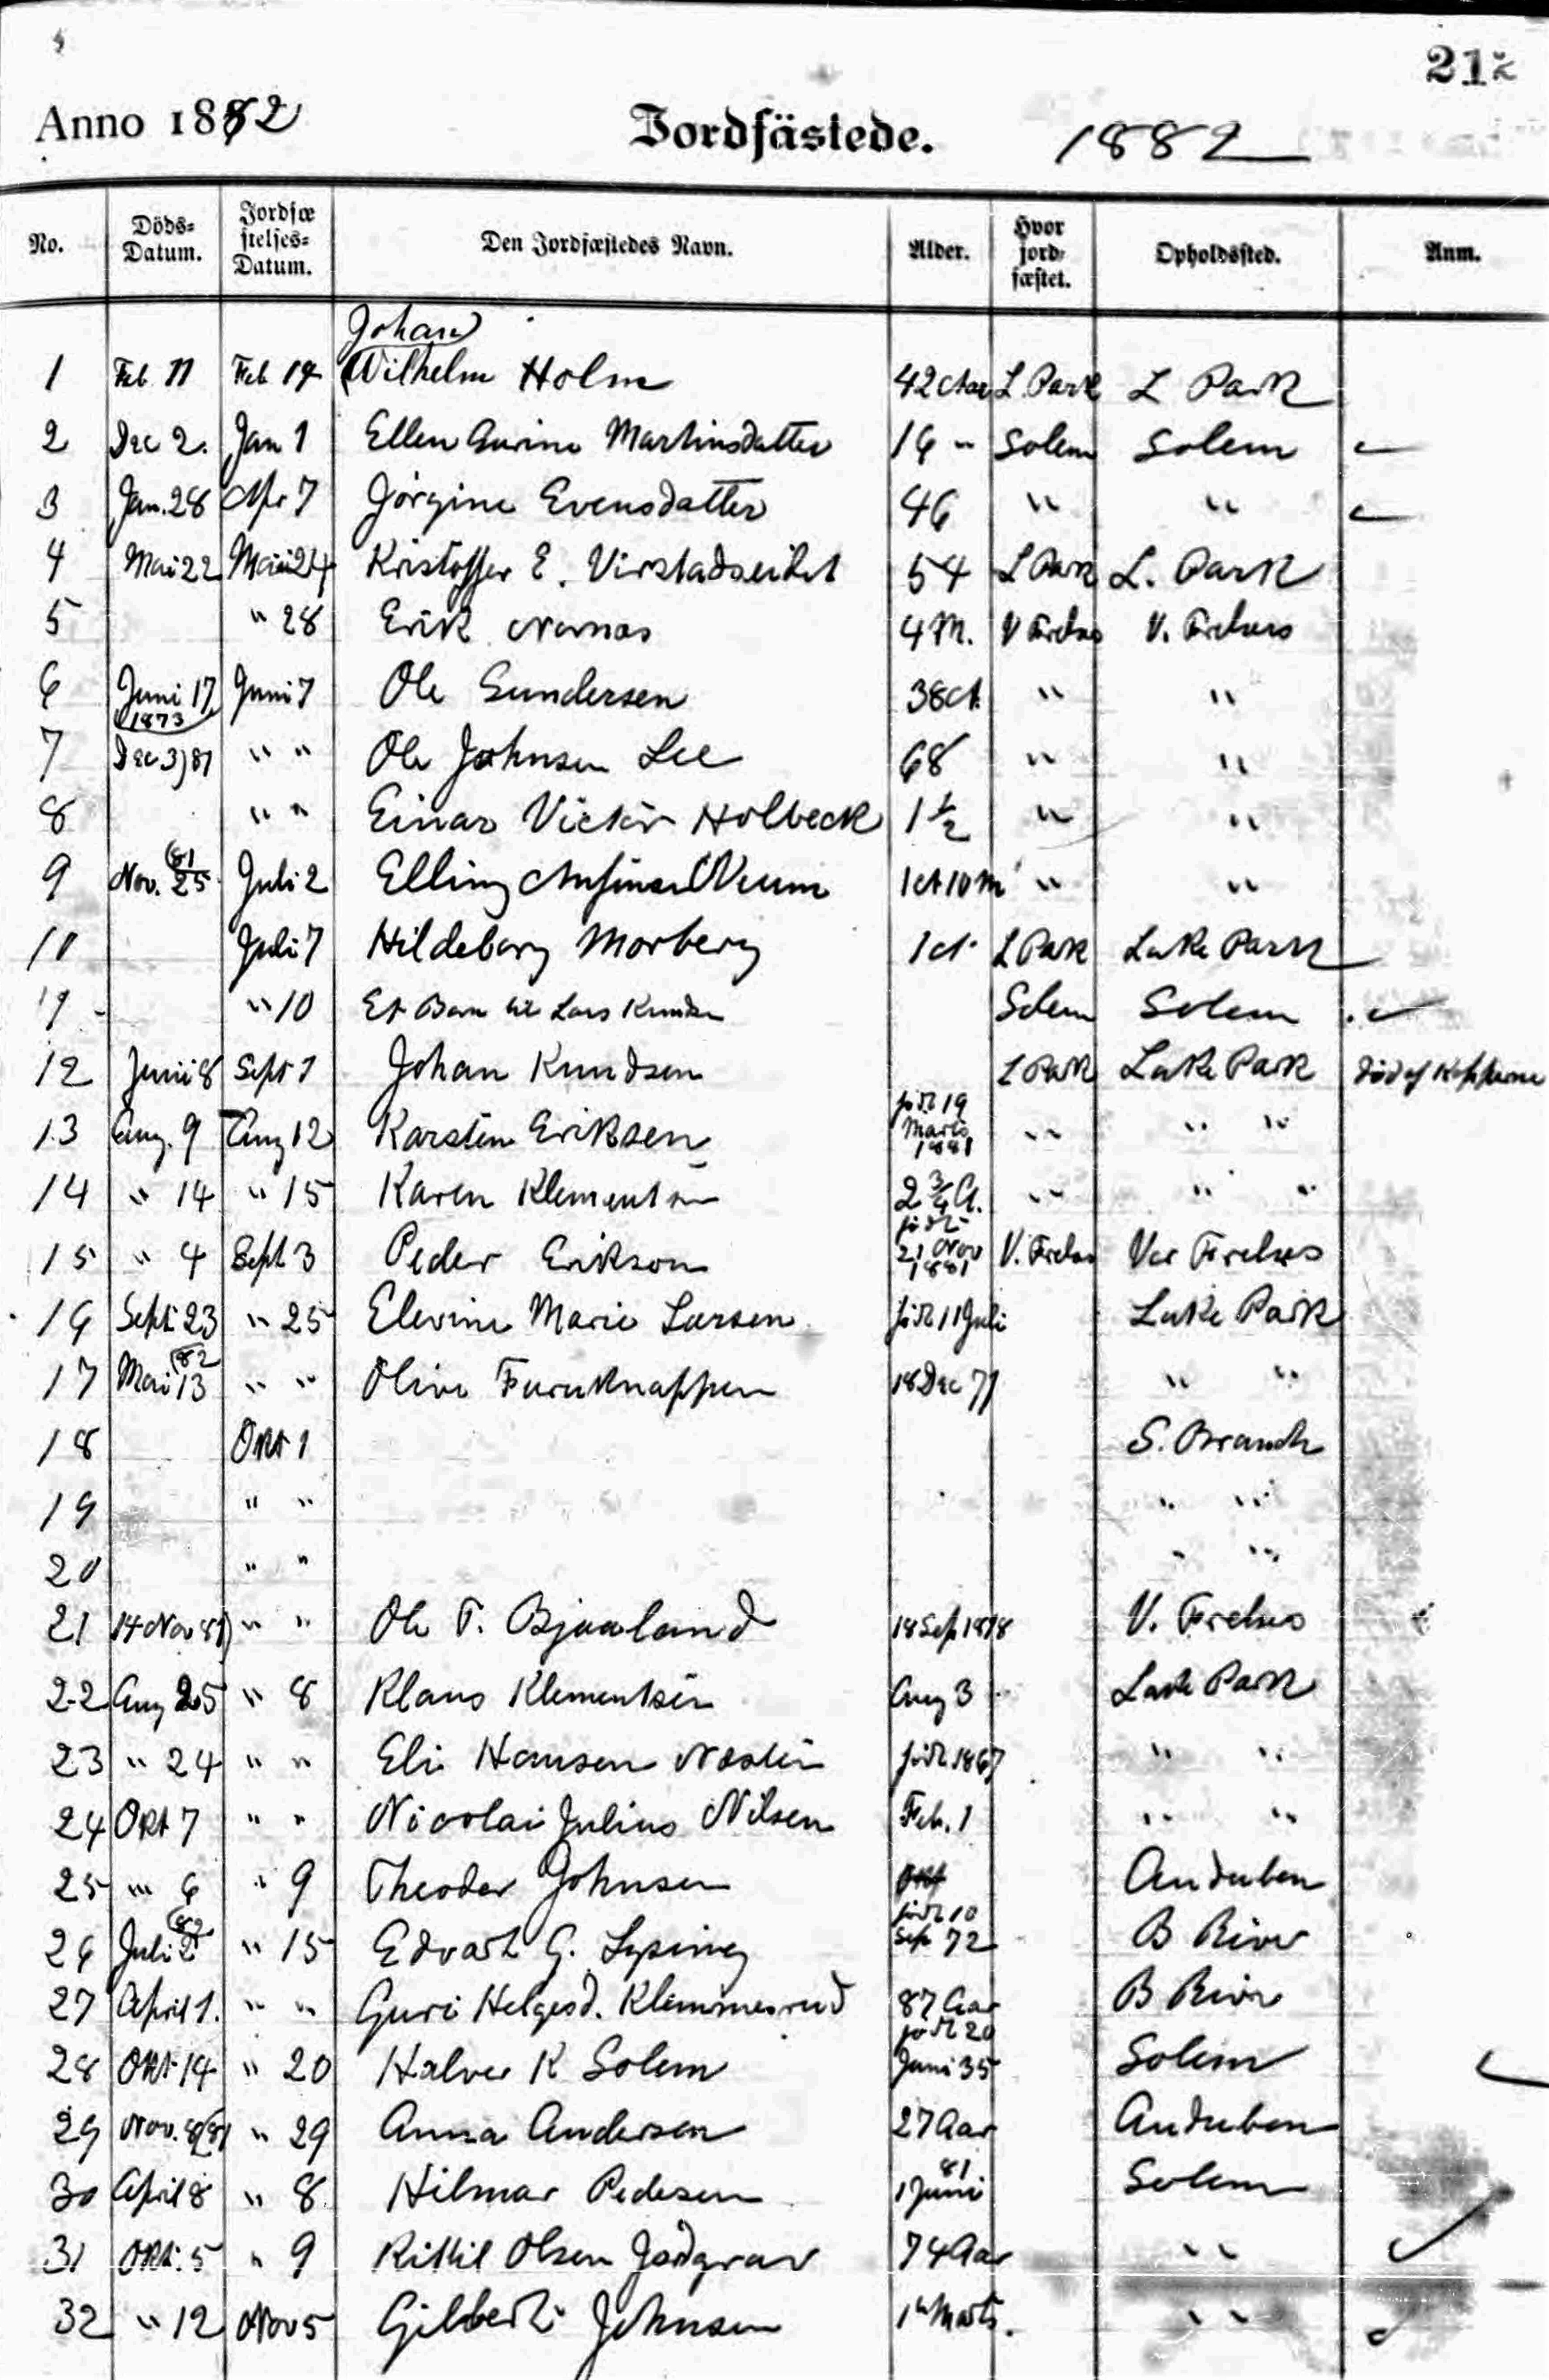 212
Anno 1882 Jordfästede. 1882
No. Döds-Datum. Jordfæstelses-Datum. Den Jordfæstedes Navn. Alder. Hvor jordfæstet. Opholdssted. Anm.
Johan
1 Feb. 11 Feb 14 Wilhelm Holm 42 Aar L. Park L Park
2 Dec 2. Jan 1 Ellen Gurine Martinsdatter 16 " Solem Solem
3 Jan. 28 Apr 7 Jörgine Evensdatter 46 " "
4 Mai 22 Mai 24 Kristoffer E. 54 L Park L. Park
5 " 28 Erik 4 M. V Frelses V. Frelsers
6 Juni 17 1873 Juni 7 Ole Gundersen 38 A. " "
7 Dec 3) 81 " " Ole Johnsen Lee 68 " "
8 " " Einar Victor Holbeck 1 1/2 " "
9 Nov. 25 (81 Juli 2 Elling 1 A 10 M " "
10 Juli 7 Hildeborg Morberg 1 A. L Park Lake Park
11 " 10 Et Barn til Lars Knudsen Solem Solem
12 Juni 8 Sept 1 Johan Knudsen L Park Lake Park Död af Kopperne
13 Aug. 9 Aug 12 Karsten Eriksen födt 19 Marts 1881 " " "
14 " 14 " 15 Karen Klementsen 2 3/4 A. " " "
15 " 4 Sept 3 Peder Erikson födt 21 Nov 1881 V. Frelses Vor Frelses
16 Sept. 23 " 25 Elevine Marie Larsen födt 11 Juli Lake Park
17 Mai 13 (82 " " Olive Furuknappen 18 Dec 71 " "
18 Okt 1 S. Branch
19 " " " "
20 " " " "
21 14 Nov 81) " " Ole T. Bjaaland 18 Sep 1878 V. Frelses
22 Aug 25 " 8 Klaus Klementsen Aug 3 Lake Park
23 " 24 " " Eli Hansen födt 1867 " "
24 Okt 7 " " Nicolai Julius Nilsen Feb. 1 " "
25 " 6 " 9 Theodor Johnsen Okt Audubon
26 Juli 2 (82 " 15 Edvart G. födt 10 Sep 72 B River
27 April 1. " " Guri Helgesd. Klemmesrud 87 Aar B River
28 Okt 14 " 20 Halvor K Solem födt 20 Juni 35 Solem
29 Nov. 8/81 " 29 Anna Andersen 27 Aar Audubon
30 April 8 " 8 Hilmar Pedersen 1 Juni 81 Solem
31 Okt. 5 " 9 Kittil Olsen Jordgrav 74 Aar " "
32 " 12 Nov 5 Gilbert Johnsen Marts. " "